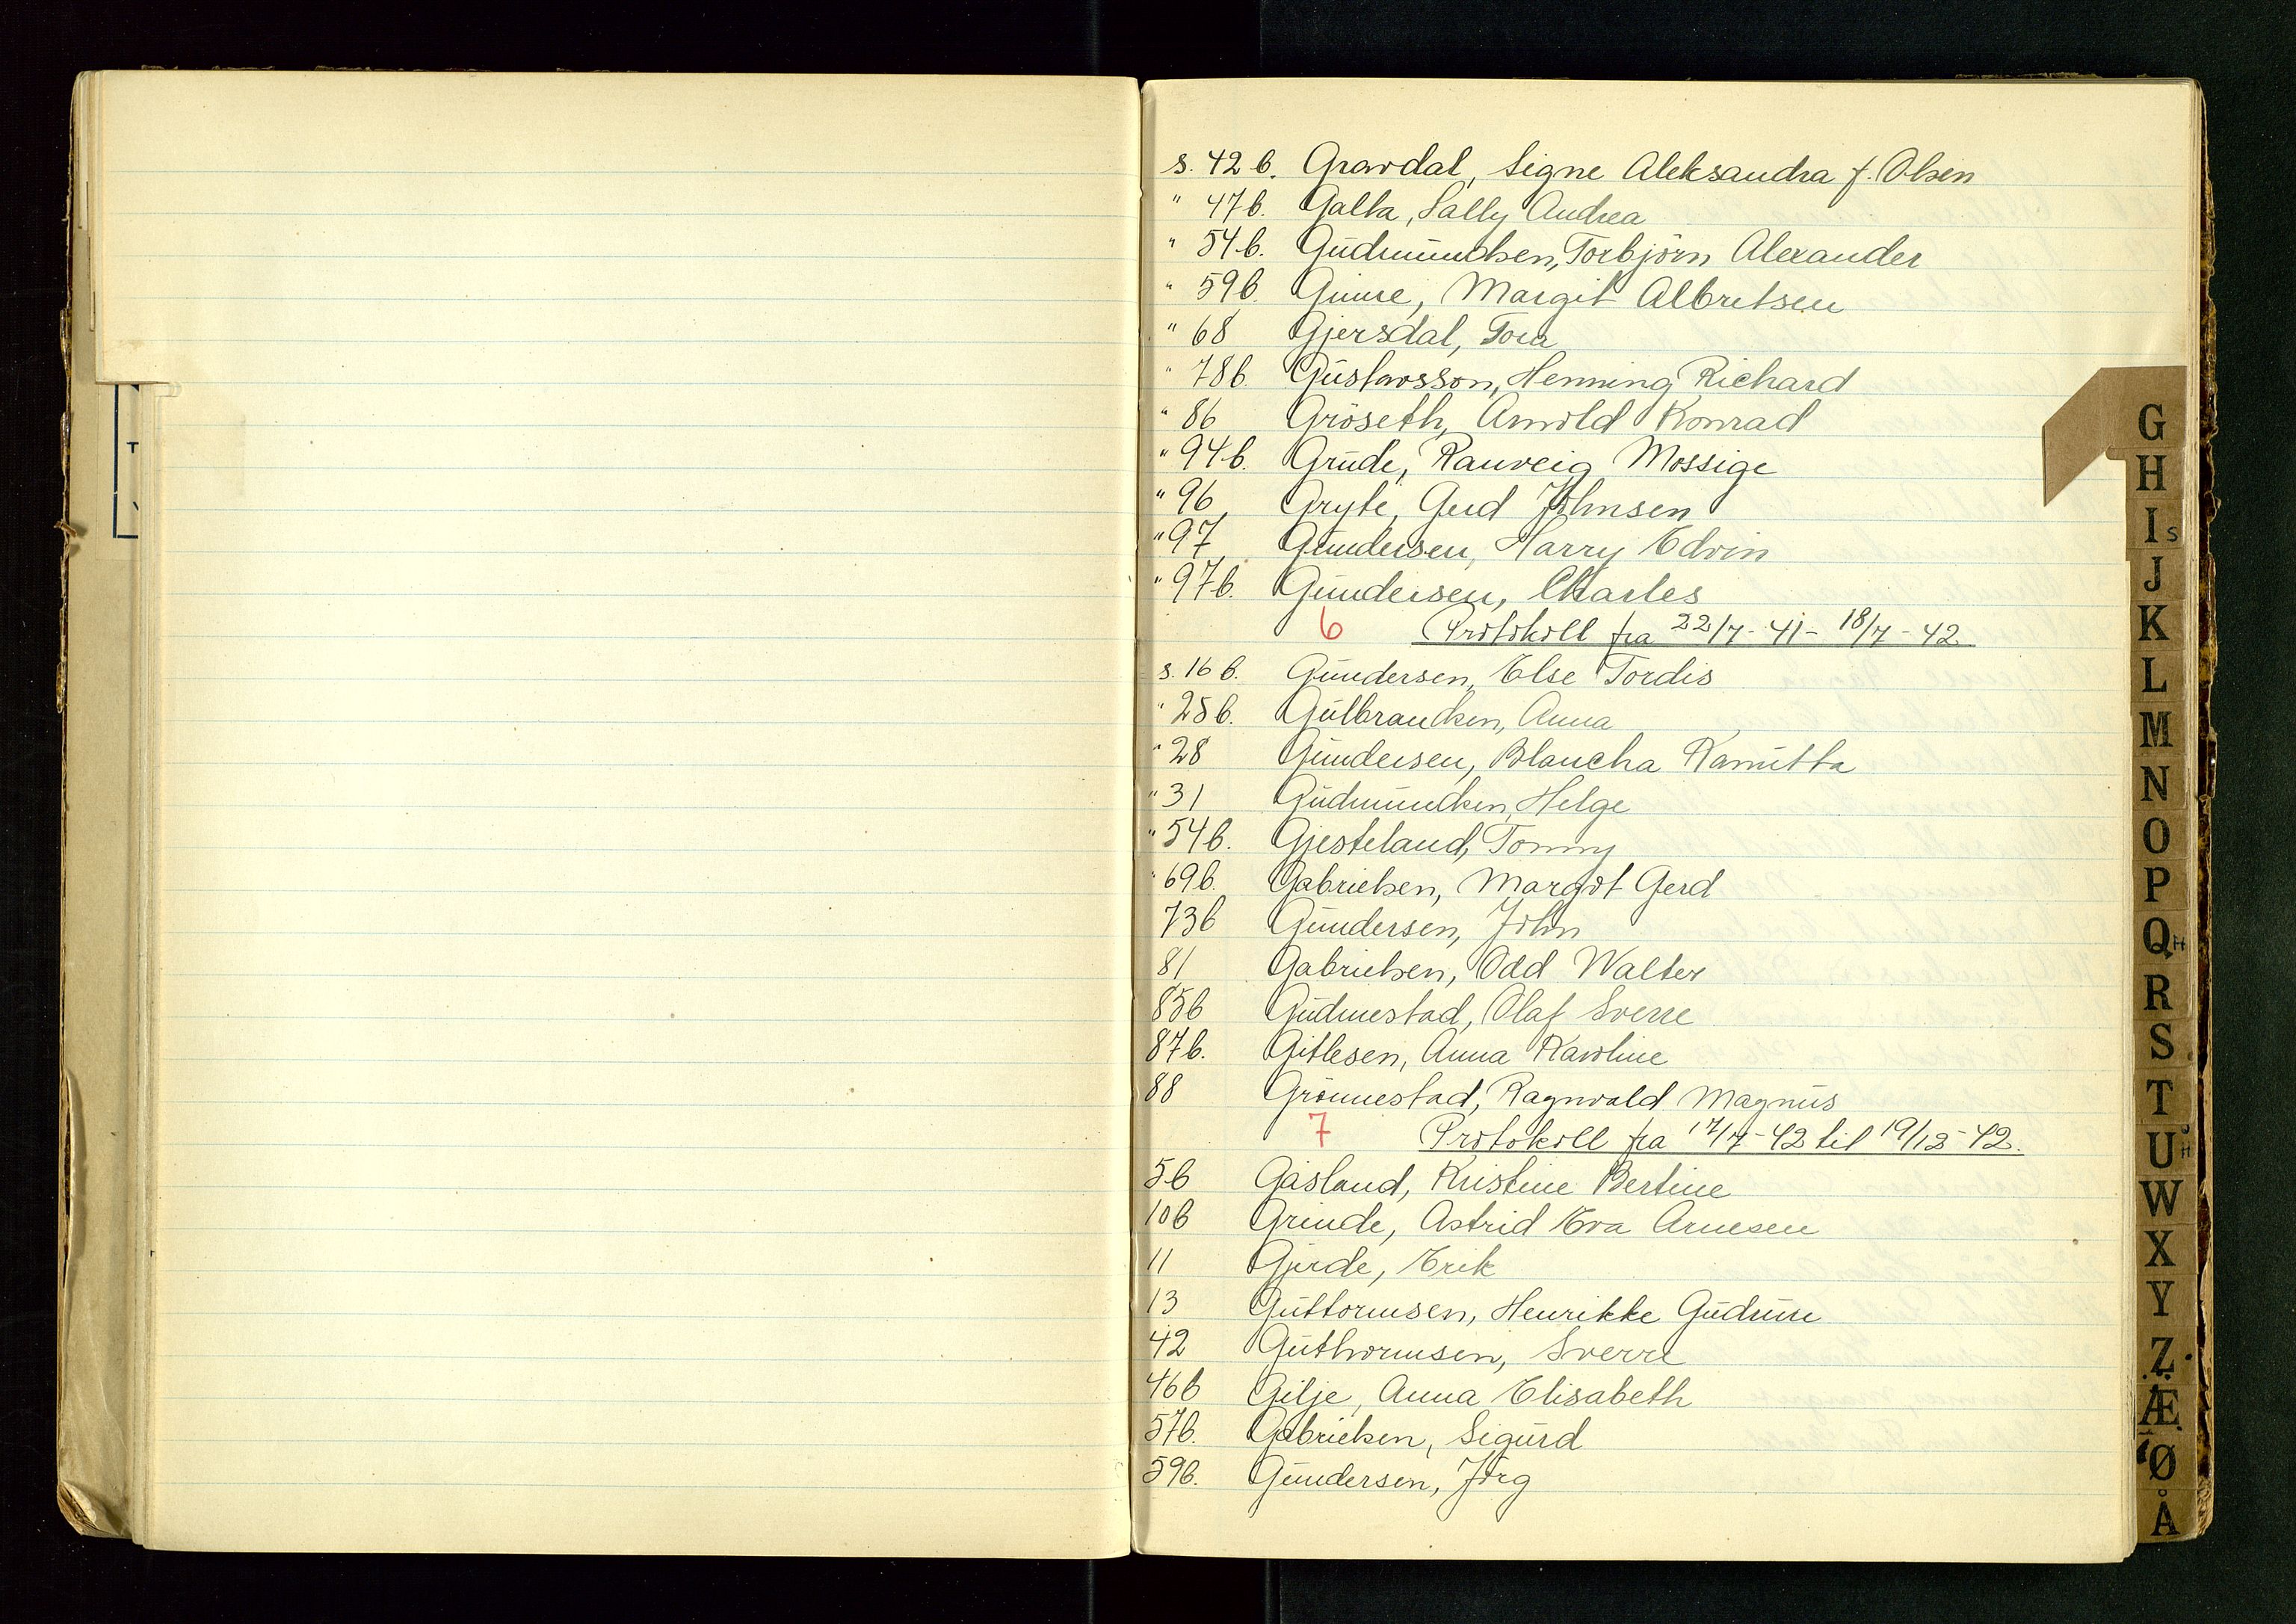 s. 42 b. Gravdal, Signe Aleksandra f. Olsen
" 47 b. Galta, Sally Andrea
" 54 b. Gudmundsen, Torbjörn Alexander
" 59 b. Gimre, Margit Albretsen
" 68 Gjersdal, Tom
" 78 b. Gustavsson, Henning Richard
" 86 Gröseth, Arnold Konrad
" 94 b. Grude, Ranveig Mossige
" 96 Gryte, Gerd Johnsen
" 97 Gundersen, Harry Edvin
" 97 b. Gundersen, Charles
6 Protokoll fra 22/7 - 41 - 18/7 - 42
s. 16 b. Gundersen, Else Tordis
" 25 b. Gulbrandsen, Anna
" 28 Gundersen, Blancha Ramitta
" 31 Gudmundsen, Helge
" 54 b. Gjesteland, Tonny
" 69 b. Gabrielsen, Margot Gerd
73 b Gundersen, John
81 Gabrielsen, Odd Walter
85 b Gudmestad, Olaf Sverre
87 b. Gitlesen, Anna Karoline
88 Grönnestad, Ragnvald Magnus
7 Protokoll fra 17/7 - 42 til 19/12 - 42.
5 b Gåsland, Kristine Bertine
10 b Grinde, Astrid Eva Arnesen
11 Gjerde, Erik
13 Guttormsen, Henrikke Gudrun
42 Guthormsen, Sverre
46 b Gilje, Anna Elisabeth
57 b. Gabrielsen, Sigurd
59 b. Gundersen, Jörg
G
H
I s
J
K
L
M
N
O
P
Q H
R
S
T
U H
W
X
Y
Z
Æ
Ø
Å